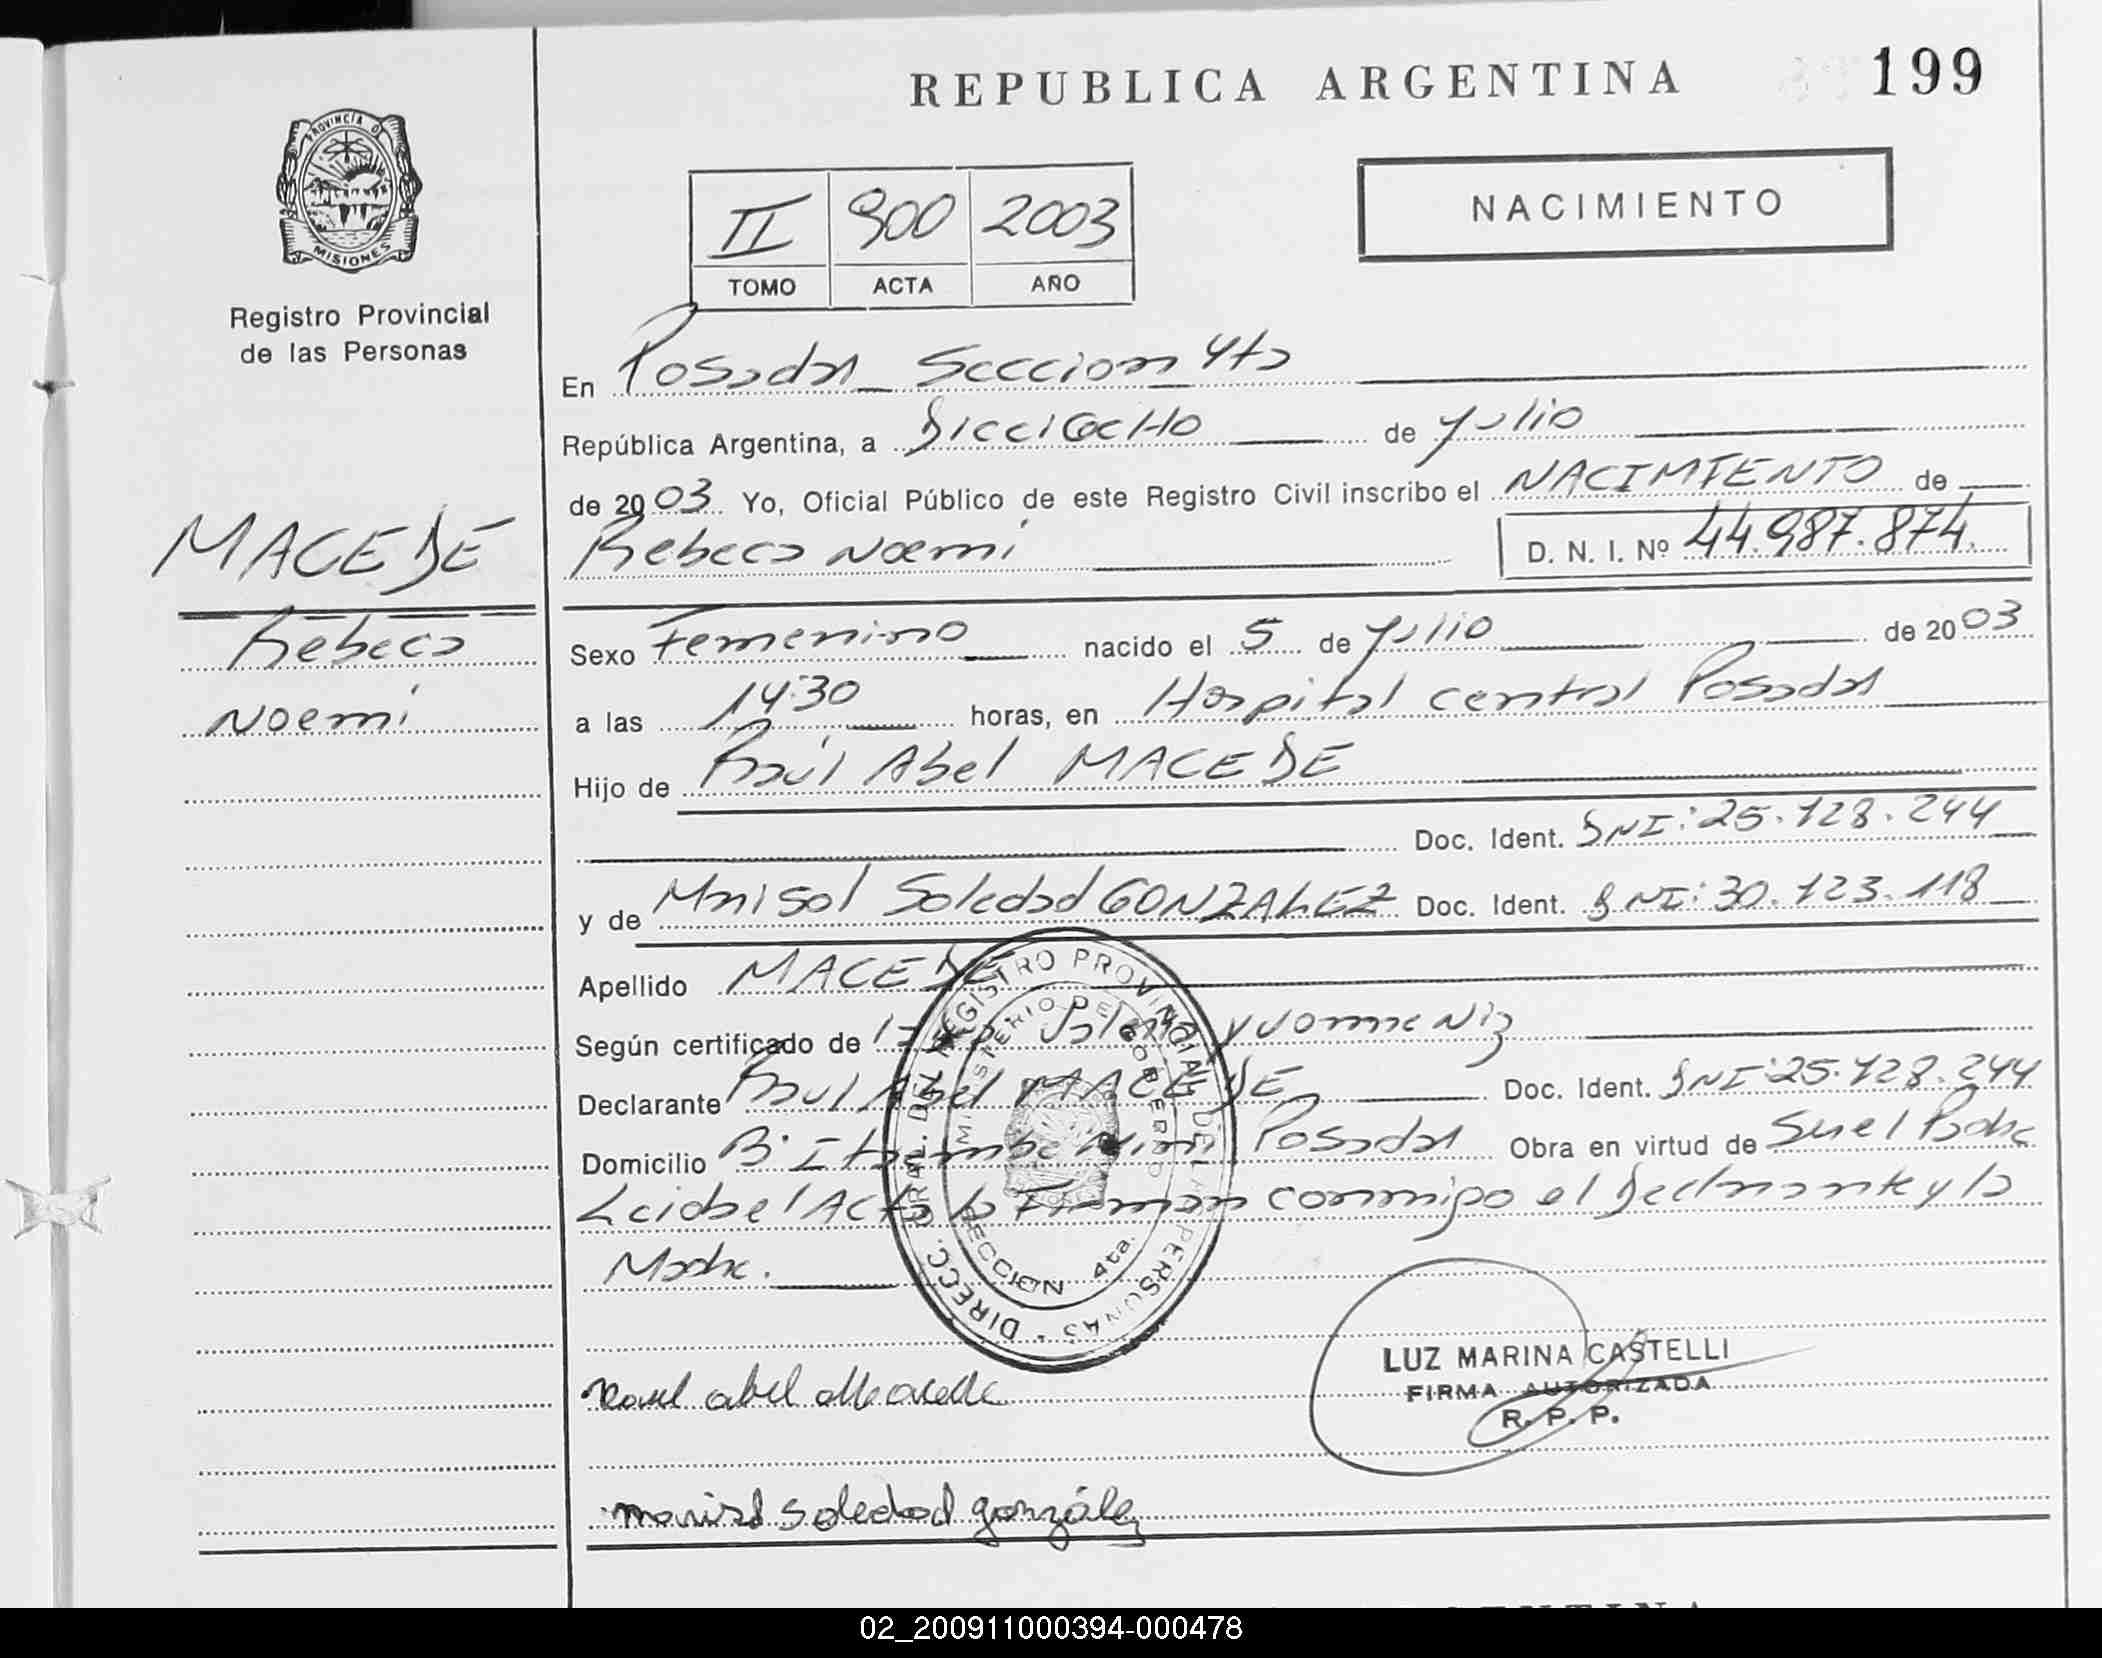 REPUBLICA ARGENTINA
199
PROVINCIA D
MISIONES
Registro Provincial
de las Personas
II 900 2003
TOMO ACTA AÑO
NACIMIENTO
En Posadas Seccion 4ta
República Argentina, a Dieciocho de Julio
de 2003 Yo, Oficial Público de este Registro Civil inscribo el NACIMIENTO de
Rebeca Noemí
D. N. I. Nº 44.987.874.
MACEDE
Rebeca
Noemí
Sexo Femenino nacido el 5 de Julio de 2003
a las 14:30 horas, en Hospital central Posadas
Hijo de Raúl Abel MACEDE
Doc. Ident. DNI: 25.128.244
y de Marisol Soledad GONZALEZ Doc. Ident. DNI: 30.123.118
Apellido MACEDE
Según certificado de Yvonne Niz
Declarante Raul Abel MACEDE Doc. Ident. DNI: 25.128.244
Domicilio Bº Itaembe Mini Posadas Obra en virtud de Ser el Padre
Leida el Acta la Firman conmigo el Declarante y la
Madre.
DIRECC. GRAL. DEL REGISTRO PROVINCIAL DE PERSONAS
MINISTERIO DE GOBIERNO
SECCION 4ta.
Raul abel Macede
LUZ MARINA CASTELLI
FIRMA AUTORIZADA
R. P. P.
marisol soledad gonzález
02_200911000394-000478